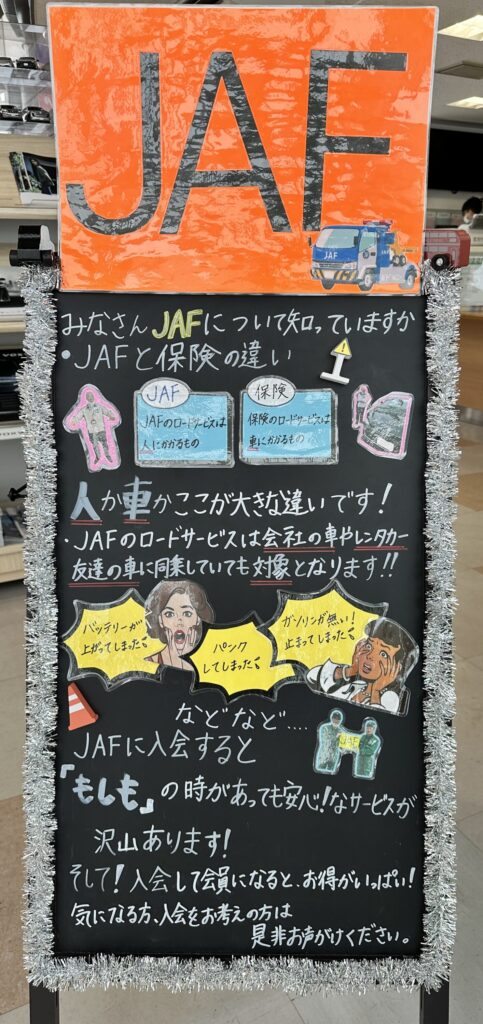 JAF
JAF
みなさんJAFについて知っていますか
・JAFと保険の違い
JAF
JAFのロードサービスは
人にかかるもの
保険
保険のロードサービスは
車にかかるもの
人か車かここが大きな違いです！
・JAFのロードサービスは会社の車やレンタカー
友達の車に同乗していても対象となります!!
バッテリーが
上がってしまった
パンク
してしまった
ガソリンが無い！
止まってしまった
などなど....
JAFに入会すると
JAF
「もしも」の時があっても安心！なサービスが
沢山あります！
そして！入会して会員になると、お得がいっぱい！
気になる方、入会をお考えの方は
是非お声がけください。